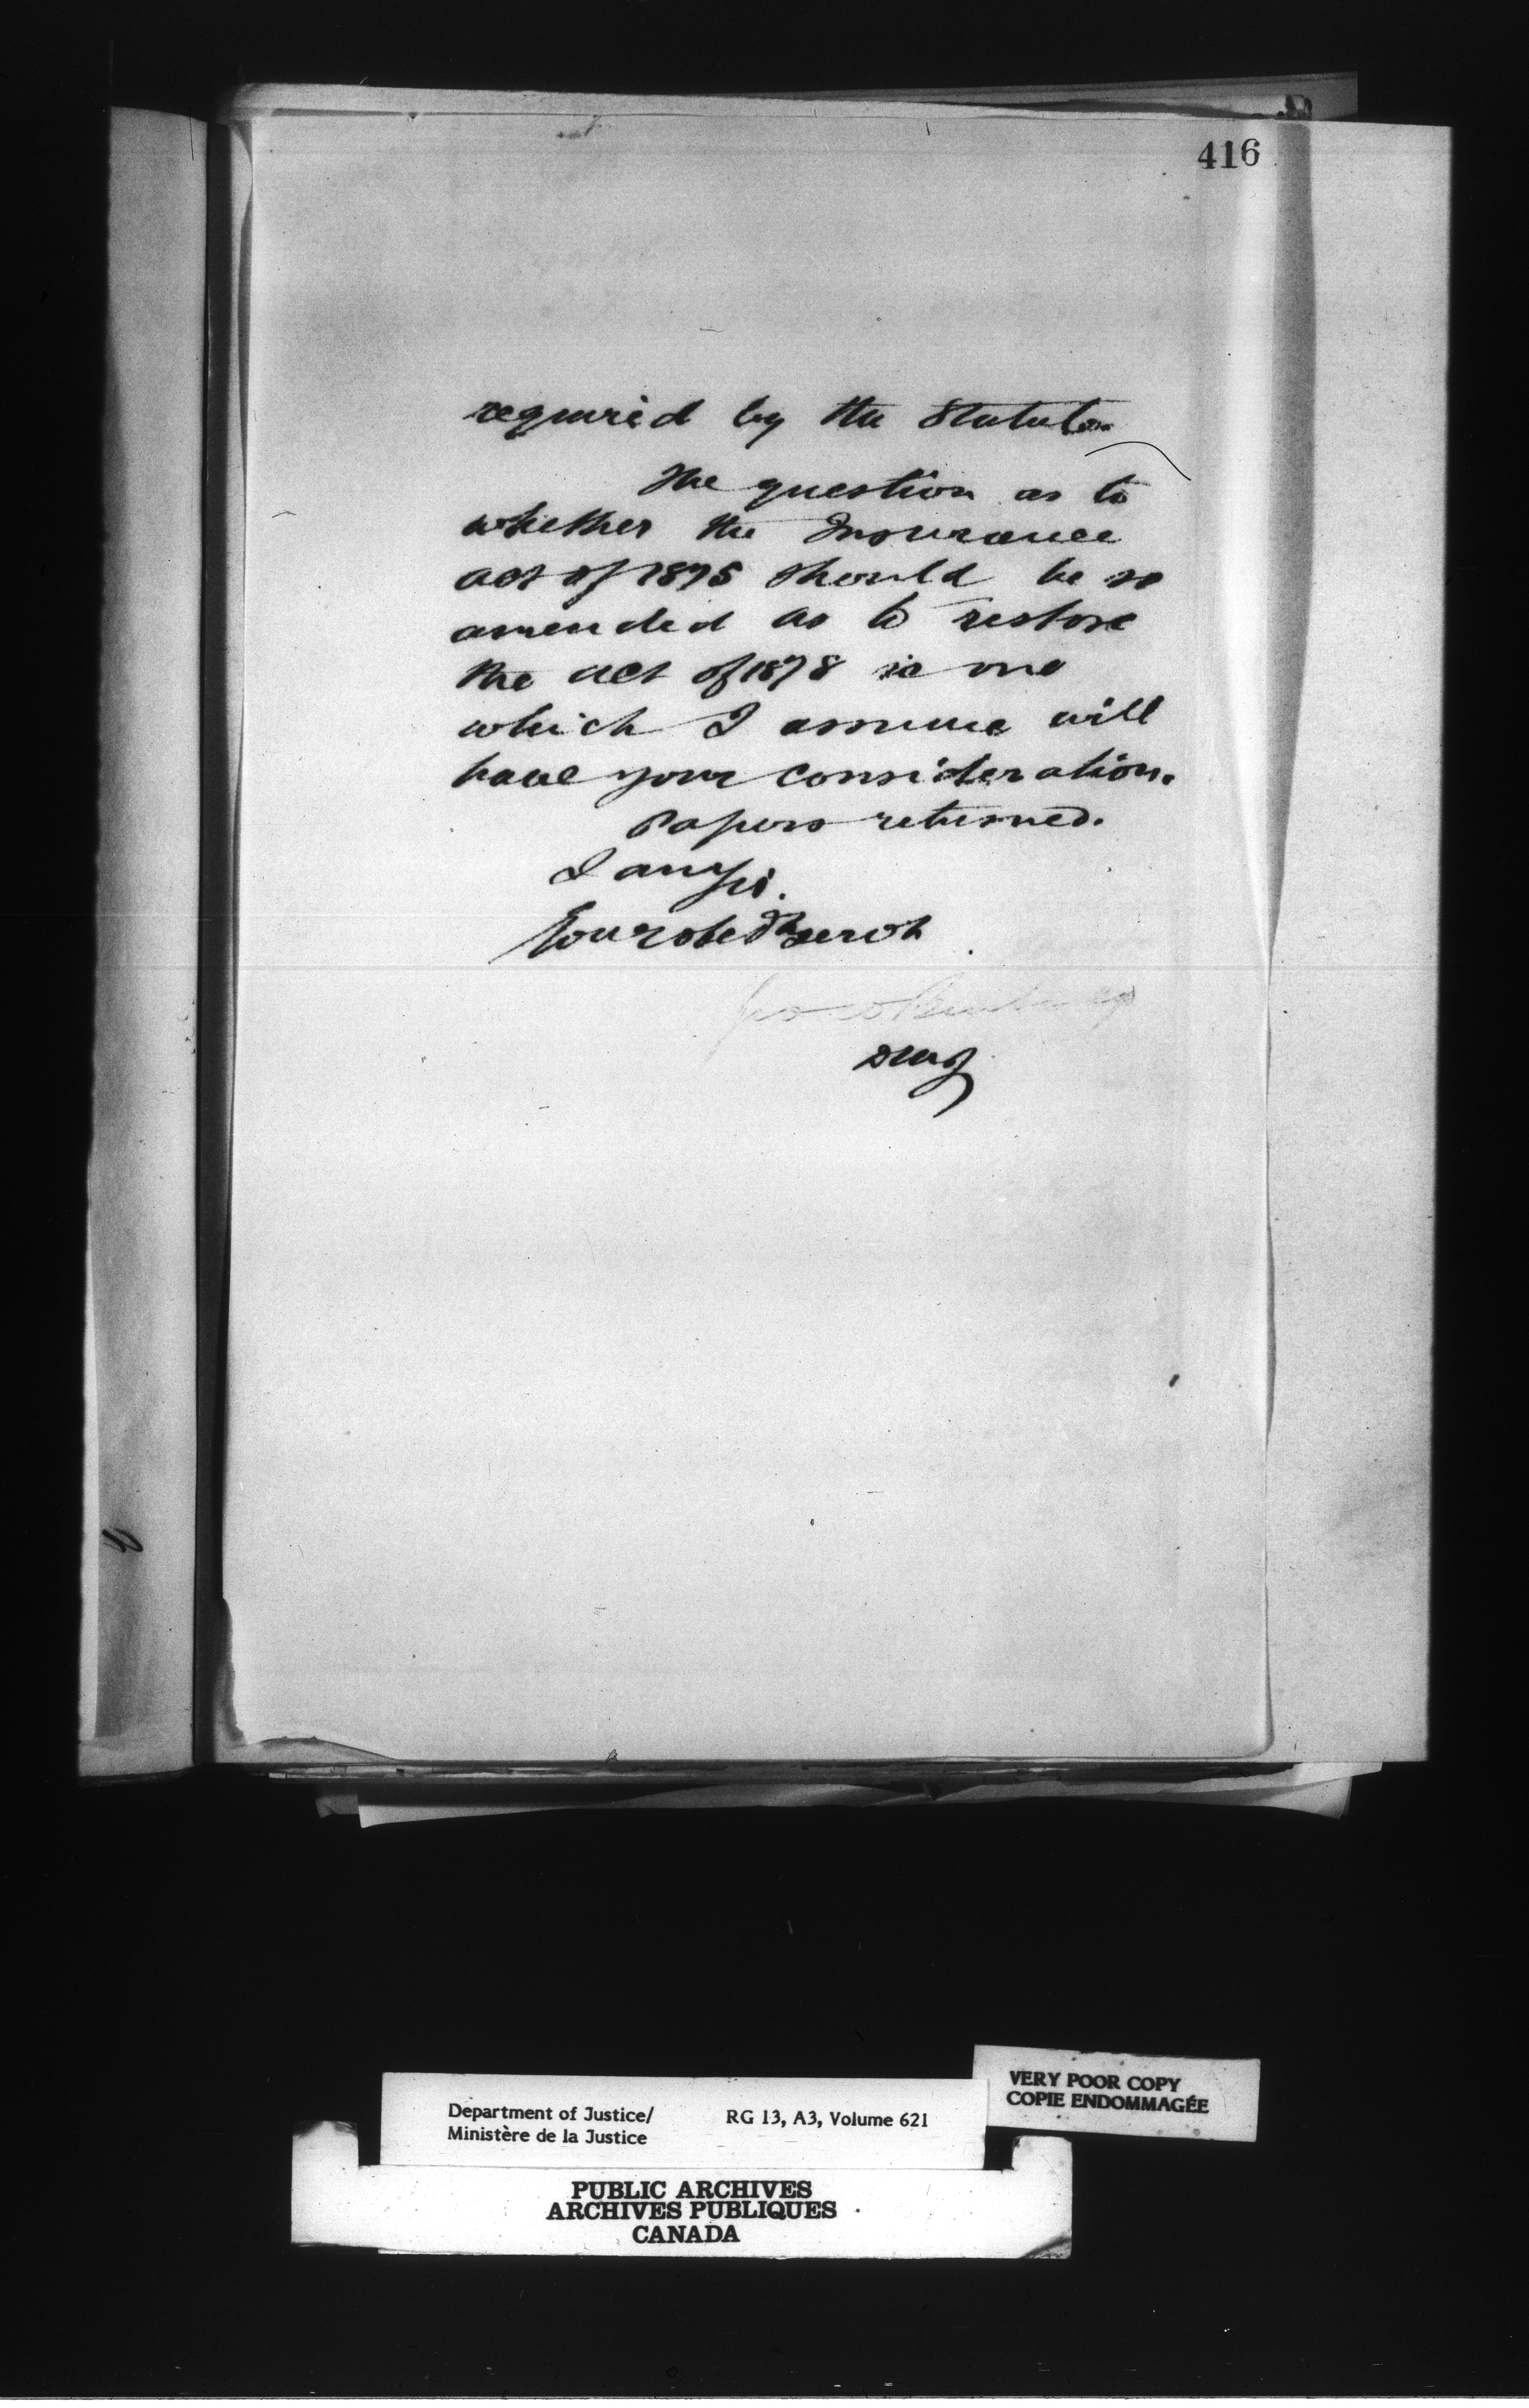 416
required by the Statute.
The question as to
whether the Insurance
act of 1875 should be so
amended as to restore
the act of 1878 is one
which I assume will
have your consideration.
Papers returned.
I am Sir.
Your obedt servt
DMJ
Department of Justice/
Ministère de la Justice
RG 13, A3, Volume 621
VERY POOR COPY
COPIE ENDOMMAGÉE
PUBLIC ARCHIVES
ARCHIVES PUBLIQUES
CANADA